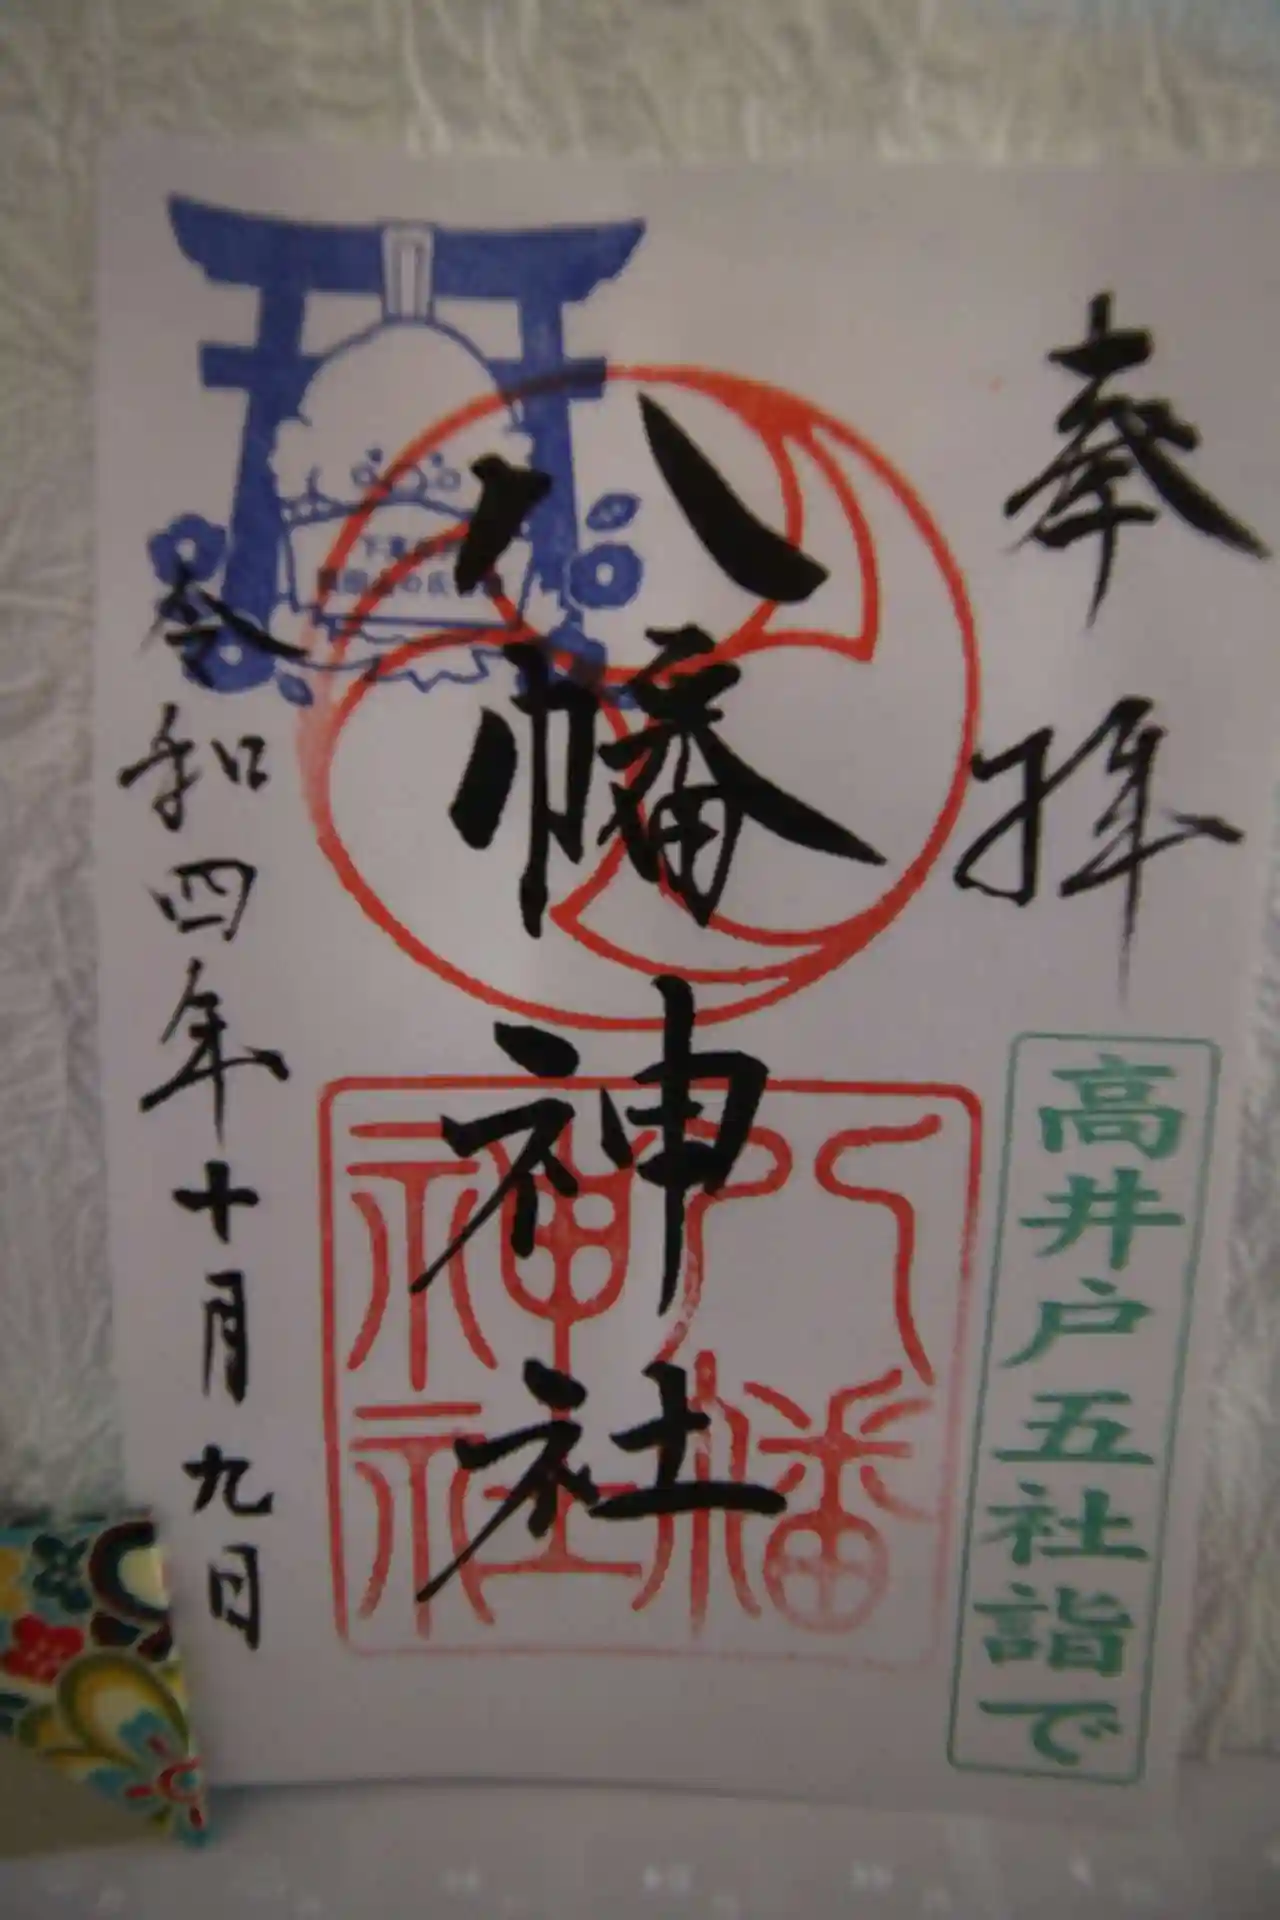 奉拝
高井戸五社詣で
八幡神社
八幡
神社
令和四年十月九日